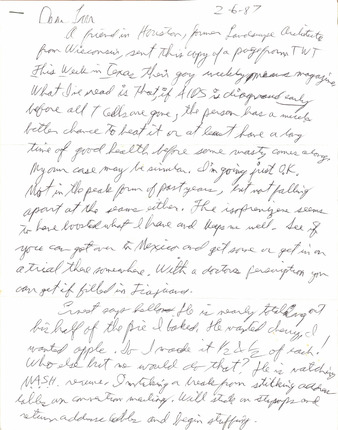 2-6-87
Dear
A friend in Houston, former Landscape Architect
from Wisconsin, sent this copy of a page from TWT
This Week in Texas their gay weekly magazine.
What I've read is that if AIDS is diagnosed early
before all T cells are gone, the person has a much
better chance to beat it or at least have a long
time of good health before some nasty comes along.
My own case may be similar. I'm going just O.K.
Not in the peak form of past years, but not falling
apart at the seams either. The isoprenysine seems
to have boosted what I have and keeps me well. See if
you can get over to Mexico and get some or get in on
a trial there somewhere. With a doctors perscription you
can get it filled in
says hello. He is nearly
his half of the pie I baked. He wanted cherry, I
wanted apple. So I made it ½ & ½ of each.
Who else but me would do that? He is watching
MASH reruns. I'm taking a break from sticking address
labels on convention mailing. Will stick on stamps and
return address labels and begin stuffing.